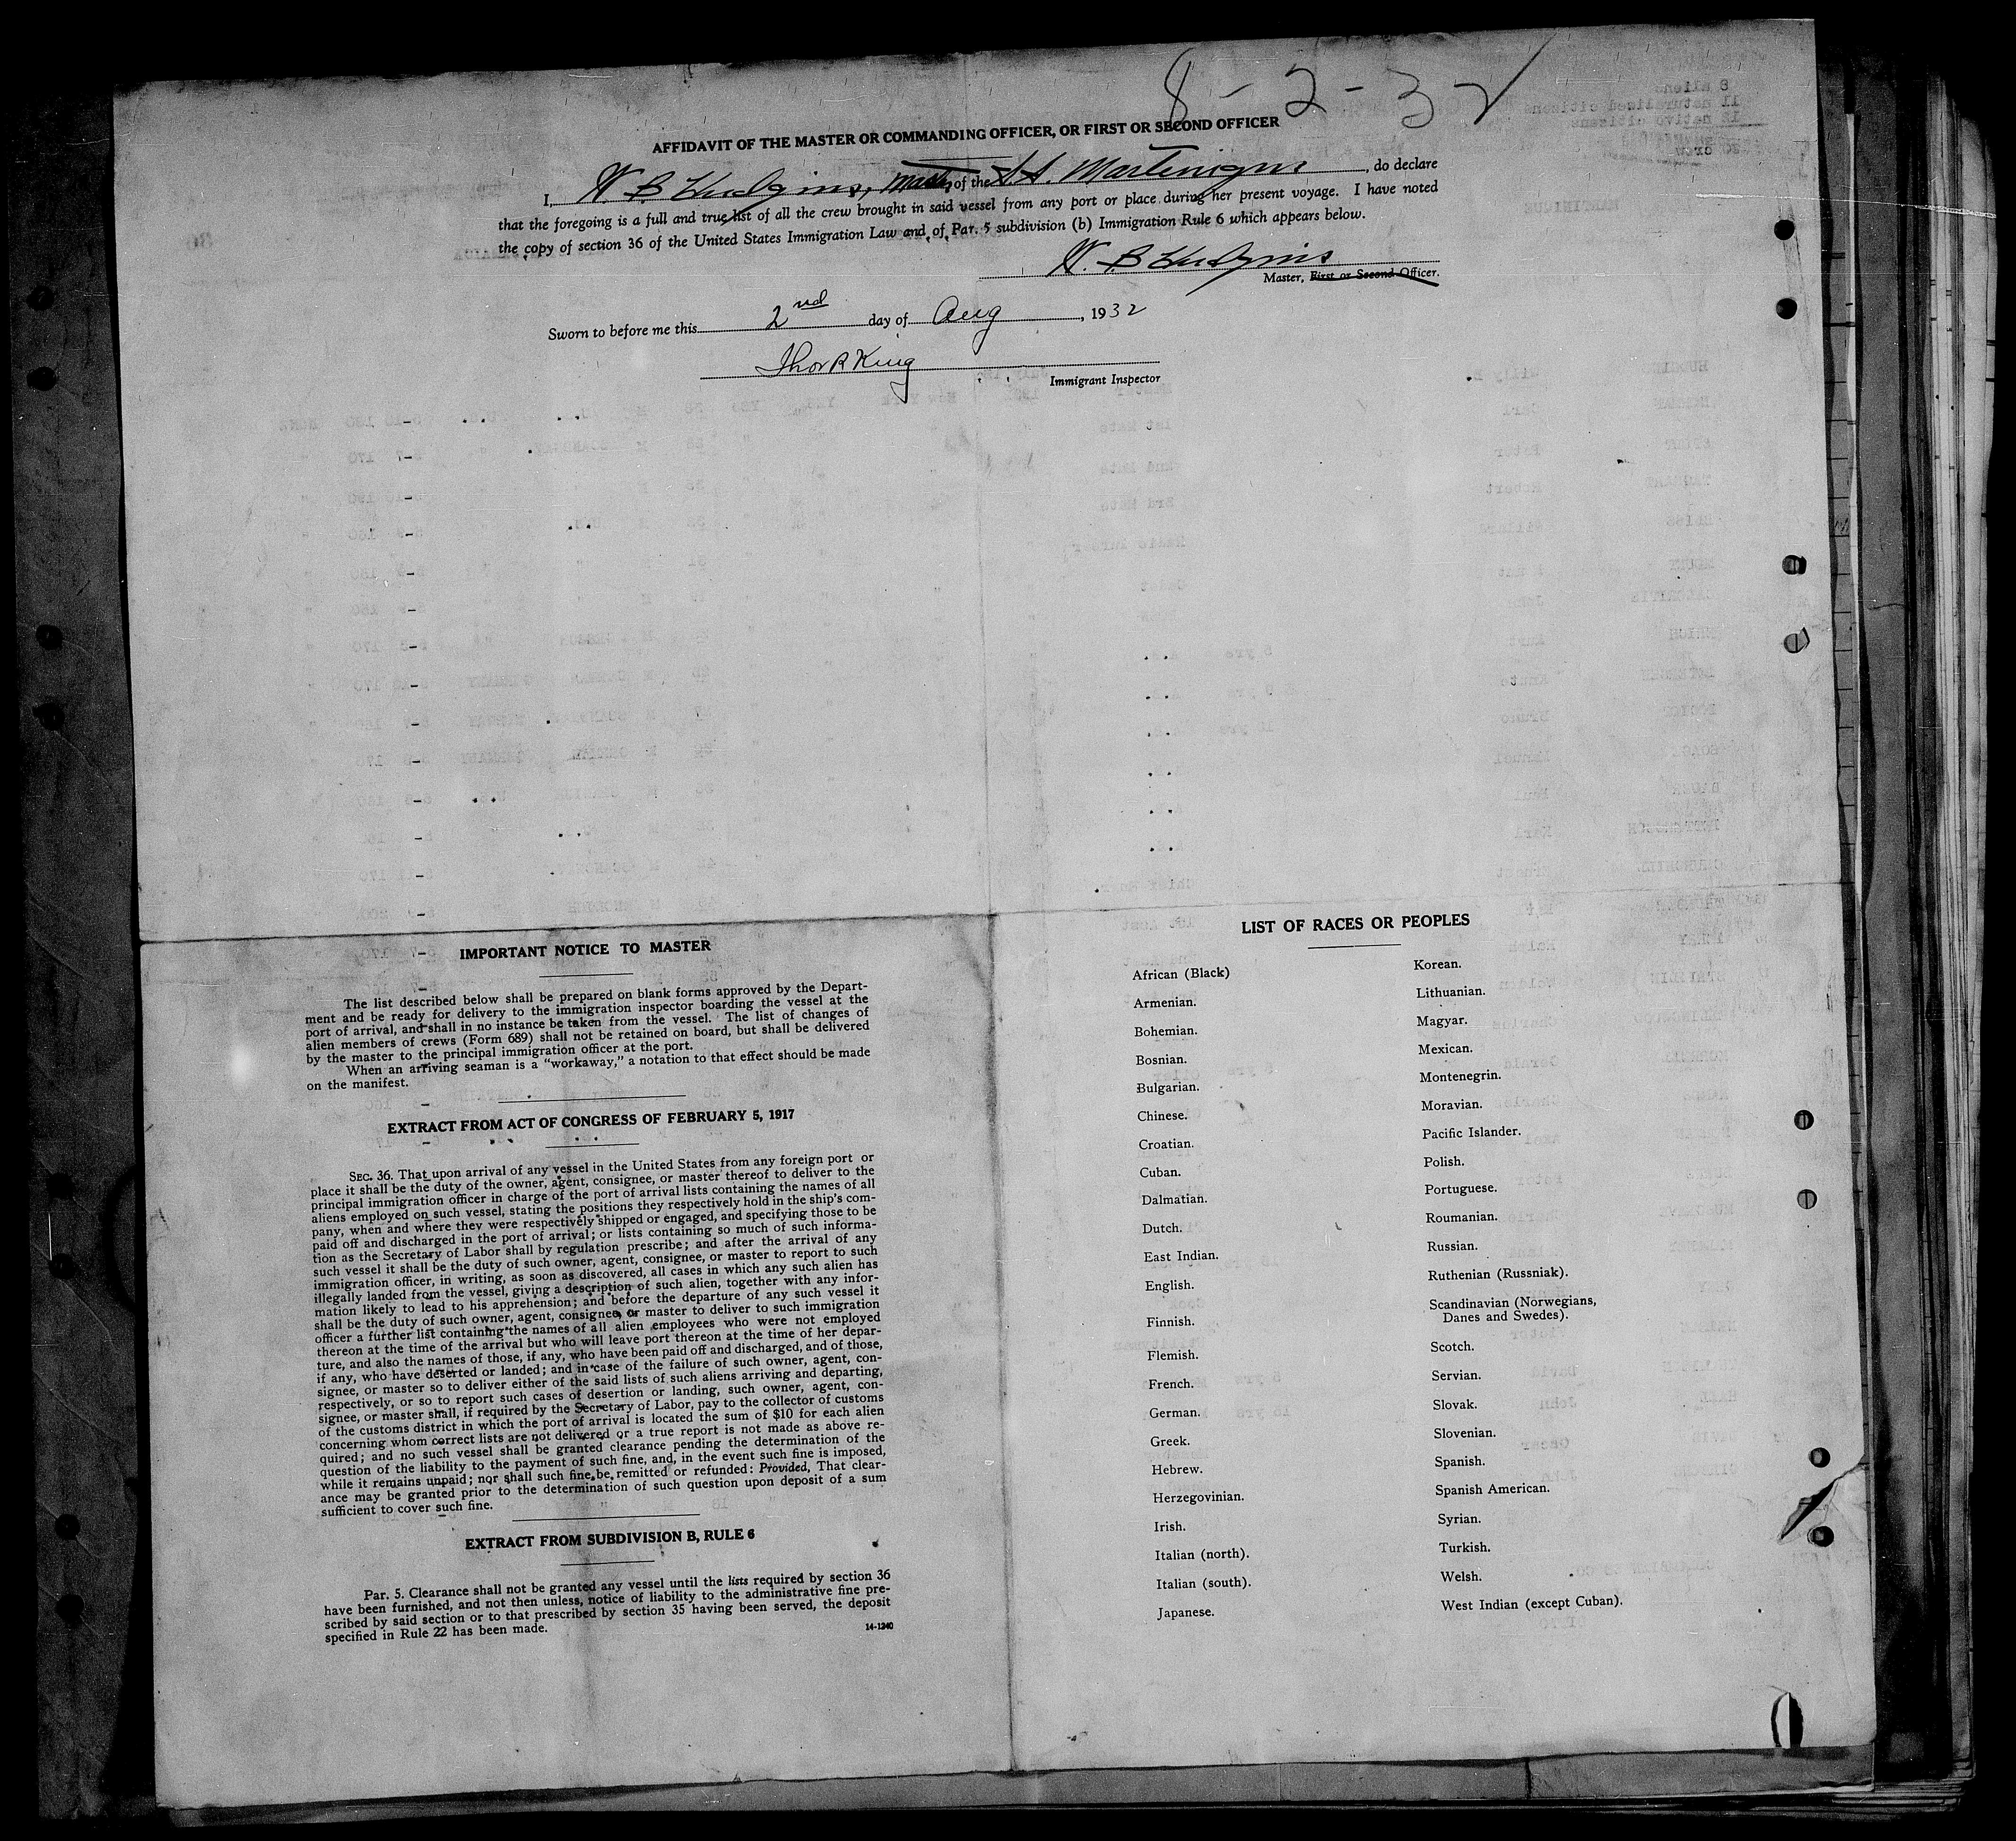 8-2-32
AFFIDAVIT OF THE MASTER OR COMMANDING OFFICER, OR FIRST OR SECOND OFFICER
I, W. B Hudgins, Master, of the S.S. Martinique, do declare
that the foregoing is a full and true list of all the crew brought in said vessel from any port or place during her present voyage. I have noted
the copy of section 36 of the United States Immigration Law and of Par. 5 subdivision (b) Immigration Rule 6 which appears below.
W. B Hudgins
Master, First or Second Officer.
Sworn to before me this 2nd day of Aug, 1932
Thor R King
Immigrant Inspector
IMPORTANT NOTICE TO MASTER
The list described below shall be prepared on blank forms approved by the Depart-
ment and be ready for delivery to the immigration inspector boarding the vessel at the
port of arrival, and shall in no instance be taken from the vessel. The list of changes of
alien members of crews (Form 689) shall not be retained on board, but shall be delivered
by the master to the principal immigration officer at the port.
When an arriving seaman is a "workaway," a notation to that effect should be made
on the manifest.
EXTRACT FROM ACT OF CONGRESS OF FEBRUARY 5, 1917
SEC. 36. That upon arrival of any vessel in the United States from any foreign port or
place it shall be the duty of the owner, agent, consignee, or master thereof to deliver to the
principal immigration officer in charge of the port of arrival lists containing the names of all
aliens employed on such vessel, stating the positions they respectively hold in the ship's com-
pany, when and where they were respectively shipped or engaged, and specifying those to be
paid off and discharged in the port of arrival; or lists containing so much of such informa-
tion as the Secretary of Labor shall by regulation prescribe; and after the arrival of any
such vessel it shall be the duty of such owner, agent, consignee, or master to report to such
immigration officer, in writing, as soon as discovered, all cases in which any such alien has
illegally landed from the vessel, giving a description of such alien, together with any infor-
mation likely to lead to his apprehension; and before the departure of any such vessel it
shall be the duty of such owner, agent, consignee, or master to deliver to such immigration
officer a further list containing the names of all alien employees who were not employed
thereon at the time of the arrival but who will leave port thereon at the time of her depar-
ture, and also the names of those, if any, who have been paid off and discharged, and of those,
if any, who have deserted or landed; and in case of the failure of such owner, agent, con-
signee, or master so to deliver either of the said lists of such aliens arriving and departing,
respectively, or so to report such cases of desertion or landing, such owner, agent, con-
signee, or master shall, if required by the Secretary of Labor, pay to the collector of customs
of the customs district in which the port of arrival is located the sum of $10 for each alien
concerning whom correct lists are not delivered or a true report is not made as above re-
quired; and no such vessel shall be granted clearance pending the determination of the
question of the liability to the payment of such fine, and, in the event such fine is imposed,
while it remains unpaid; nor shall such fine be remitted or refunded: Provided, That clear-
ance may be granted prior to the determination of such question upon deposit of a sum
sufficient to cover such fine.
EXTRACT FROM SUBDIVISION B, RULE 6
Par. 5. Clearance shall not be granted any vessel until the lists required by section 36
have been furnished, and not then unless, notice of liability to the administrative fine pre-
scribed by said section or to that prescribed by section 35 having been served, the deposit
specified in Rule 22 has been made.
14-1240
LIST OF RACES OR PEOPLES
African (Black)
Armenian.
Bohemian.
Bosnian.
Bulgarian.
Chinese.
Croatian.
Cuban.
Dalmatian.
Dutch.
East Indian.
English.
Finnish.
Flemish.
French.
German.
Greek.
Hebrew.
Herzegovinian.
Irish.
Italian (north).
Italian (south).
Japanese.
Korean.
Lithuanian.
Magyar.
Mexican.
Montenegrin.
Moravian.
Pacific Islander.
Polish.
Portuguese.
Roumanian.
Russian.
Ruthenian (Russniak).
Scandinavian (Norwegians,
Danes and Swedes).
Scotch.
Servian.
Slovak.
Slovenian.
Spanish.
Spanish American.
Syrian.
Turkish.
Welsh.
West Indian (except Cuban).